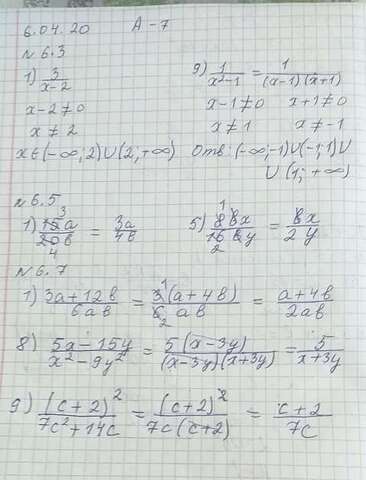 6.04.20 A-7
№6.3
1) 3/(x-2)
x-2≠0
x≠2
x∈(-∞;2)∪(2;+∞)
9) 1/(x²-1) = 1/((x-1)(x+1))
x-1≠0 x+1≠0
x≠1 x≠-1
Отв: (-∞;-1)∪(-1;1)∪
∪(1;+∞)
№6.5
1) 15a/20b = 3a/4b
5) 8bx/16by = bx/2y
№6.7
1) (3a+12b)/6ab = 3(a+4b)/6ab = (a+4b)/2ab
8) (5x-15y)/(x²-9y²) = 5(x-3y)/((x-3y)(x+3y)) = 5/(x+3y)
9) (c+2)²/(7c²+14c) = (c+2)²/(7c(c+2)) = (c+2)/7c